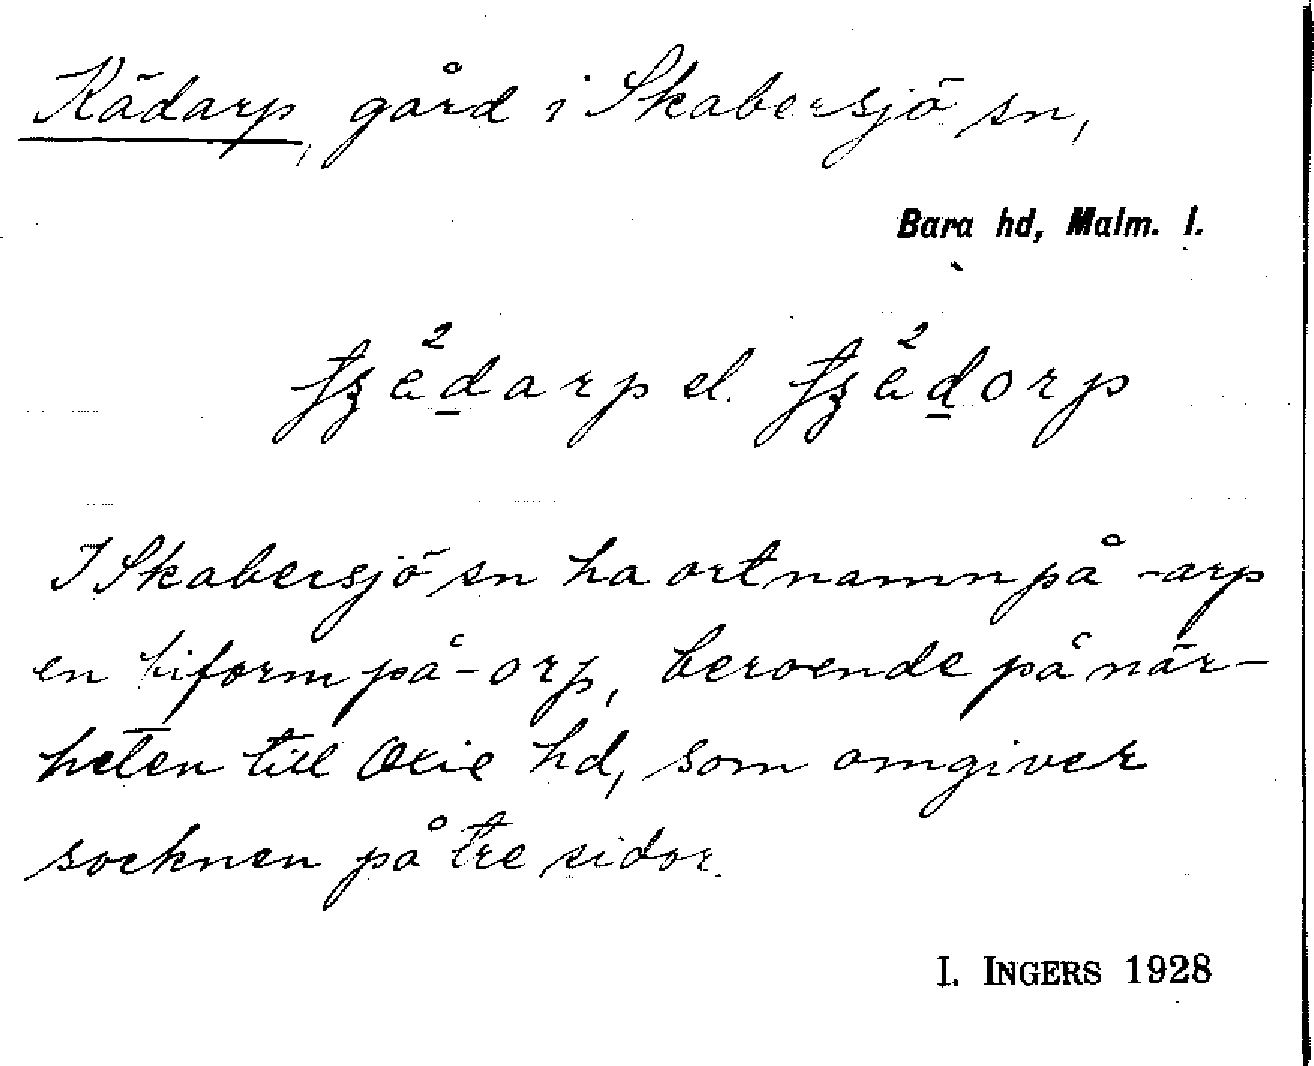 Kädarp, gård i Skabersjö sn,
Bara hd, Malm. l.
I Skabersjö sn ha ortnamn på -arp
en biform på -orp, beroende på när-
heten till Oxie hd, som omgiver
socknen på tre sidor.
I. INGERS 1928